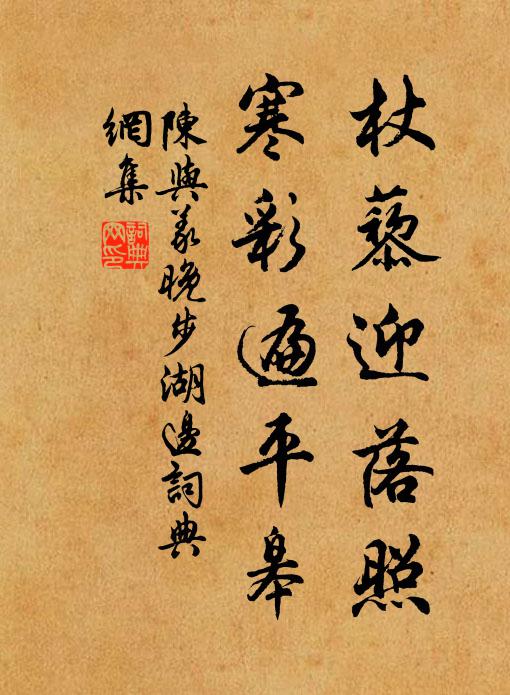 杖藜迎落照
寒彩遍平皋
陳與義晚步湖邊詞典
網集
詞典
網印